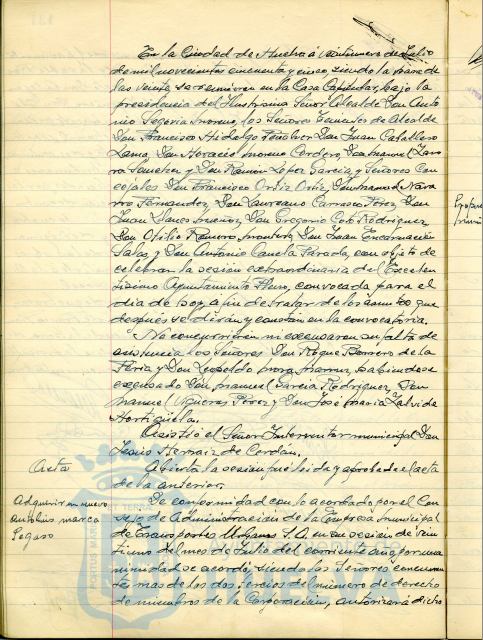 En la Ciudad de Huelva á veintinueve de Julio
de mil novecientos cincuenta y cinco, siendo la hora de
las veinte, se reunieron en la Casa Capitular, bajo la
presidencia del Ilustrísimo Señor Alcalde Don Anto
nio Segovia Moreno, los Señores Tenientes de Alcalde
Don Francisco Hidalgo Peñalver, Don Juan Caballero
Lama, Don Horacio Moreno Cordero, Don Manuel
Sanchez y Don Ramón López García, y Señores Con
cejales Don Francisco Ortiz Ortiz, Don Manuel Nava
rro Fernandez, Don Laureano Carrasco Pérez, Don
Juan Llanes Don Gregorio Coto Rodriguez,
Don Otilio Romero Don Juan Encarnación
Salas, y Don Antonio Canela Parada, con objeto de
celebrar la sesión extraordinaria del Excelen
tísimo Ayuntamiento Pleno, convocada para el
día de hoy, a fin de tratar de los asuntos que
después se dirán y constan en la convocatoria.
No concurrieron ni excusaron su falta de
asistencia los Señores Don Roque Borrero de la
Feria y Don Leopoldo Mora habiéndose
excusado Don Manuel García Rodriguez, Don
Manuel Figueroa Pérez y Don José María Zalvide
Hortigüela.
Asistió el Señor Interventor municipal Don
Jesús Hernaiz de Cerdán.
Acta
Abierta la sesión fué leida y aprobada el acta
de la anterior.
Adquirir un nuevo
autobús marca
Pegaso
De conformidad con lo acordado por el Con
sejo de Administración de la Empresa Municipal
de Transportes Urbanos S.A. en su sesión de vein
tiuno del mes de Julio del corriente año, por una
nimidad se acordó, siendo los Señores concurren
tes mas de los dos tercios del número de derecho
de miembros de la Corporación, autorizar á dicho